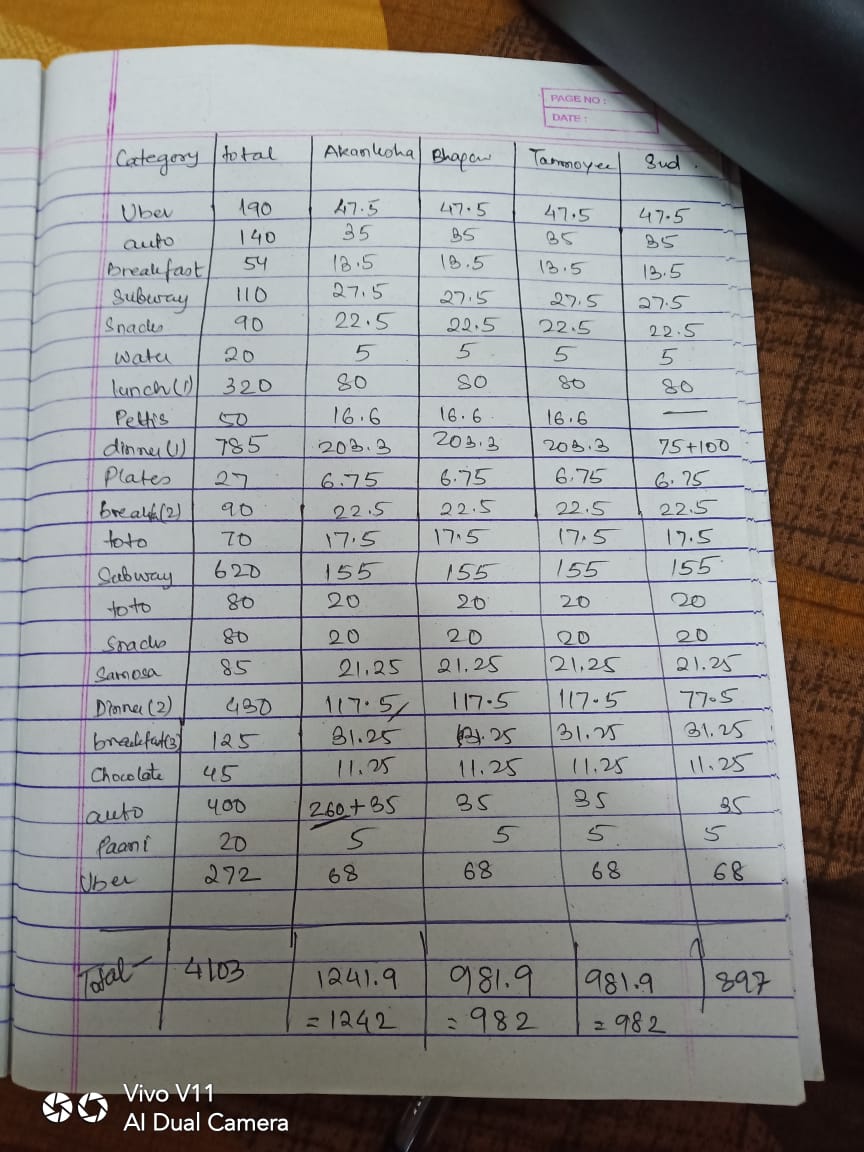 PAGE NO :
DATE :
Category total Akanksha Bhapan Tanmoyee Sud.
Uber 190 47.5 47.5 47.5 47.5
auto 140 35 35 35 35
Breakfast 54 13.5 13.5 13.5 13.5
Subway 110 27.5 27.5 27.5 27.5
Snacks 90 22.5 22.5 22.5 22.5
Water 20 5 5 5 5
lunch(1) 320 80 80 80 80
Pettis 50 16.6 16.6 16.6 —
dinner(1) 785 203.3 203.3 203.3 75+100
Plates 27 6.75 6.75 6.75 6.75
break(2) 90 22.5 22.5 22.5 22.5
toto 70 17.5 17.5 17.5 17.5
Subway 620 155 155 155 155
toto 80 20 20 20 20
Snacks 80 20 20 20 20
Samosa 85 21.25 21.25 21.25 21.25
Dinner(2) 430 117.5 117.5 117.5 77.5
breakfast(3) 125 31.25 31.25 31.25 31.25
Chocolate 45 11.25 11.25 11.25 11.25
auto 400 260+35 35 35 35
Paani 20 5 5 5 5
Uber 272 68 68 68 68
Total - 4103 1241.9 981.9 981.9 897
= 1242 = 982 = 982
Vivo V11
AI Dual Camera